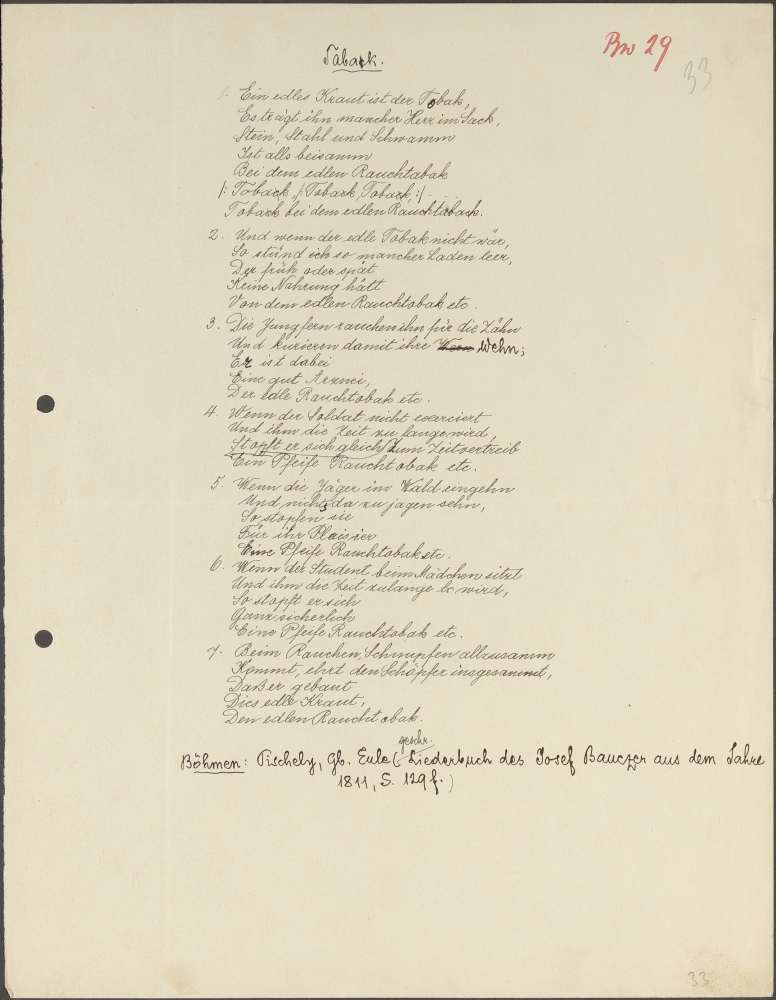 Bw 29
33
Taback.
1. Ein edles Kraut ist der Tobak,
Es trägt ihn mancher Herr im Sack,
Stein, Stahl und Schwamm
Ist alls beisamm
Bei dem edlen Rauchtabak
/: Toback, / Toback, Toback, :/
Toback bei dem edlen Rauchtaback.
2. Und wenn der edle Tobak nicht wär,
So stünd ich so mancher Laden leer,
Der früh oder spät
Keine Nahrung hätt
Von dem edlen Rauchtobak etc.
3. Die Jungfern rauchen ihn für die Zähn
Und kurieren damit ihre Wehn;
Er ist dabei
Eine gut Arznei,
Der edle Rauchtobak etc.
4. Wenn der Soldat nicht exerciert
Und ihm die Zeit zu lange wird,
Stopft er sich gleich Zum Zeitvertreib
Ein Pfeife Rauchtobak etc.
5. Wenn die Jäger im Wald eingehn
Und nichts da zu jagen sehn,
So stopfen sie
Für ihr Plaisier
Eine Pfeife Rauchtabak etc.
6. Wenn der Student beim Mädchen sitzt
Und ihm die Zeit zulange wird,
So stopft er sich
Ganz sicherlich
Eine Pfeife Rauchtobak etc.
7. Beim Rauchen, Schnupfen allzusamm
Kommt, ehrt den Schöpfer insgesammt,
Daß er gebaut
Dies edle Kraut,
Den edlen Rauchtobak.
geschr.
Böhmen: Pischely, Gb. Eule (Liederbuch des Josef Bauczer aus dem Jahre
1811, S. 129 f.)
33